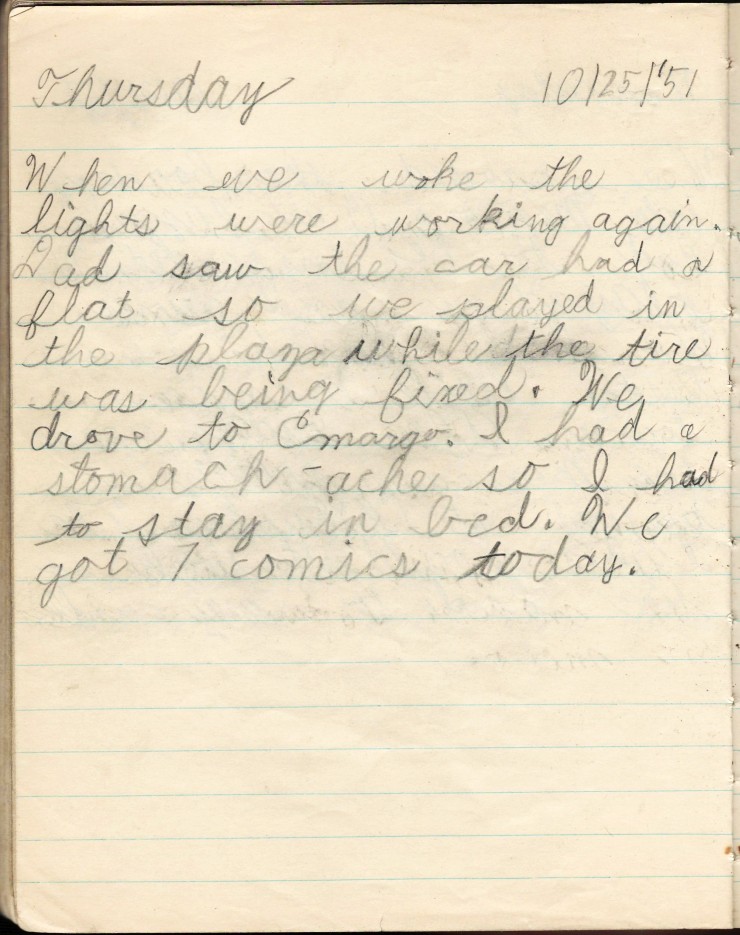 Thursday 10/25/'51
When we woke the
lights were working again.
Dad saw the car had a
flat so we played in
the plaza while the tire
was being fixed. We
drove to Camargo. I had a
stomach-ache so I had
to stay in bed. We
got 7 comics today.